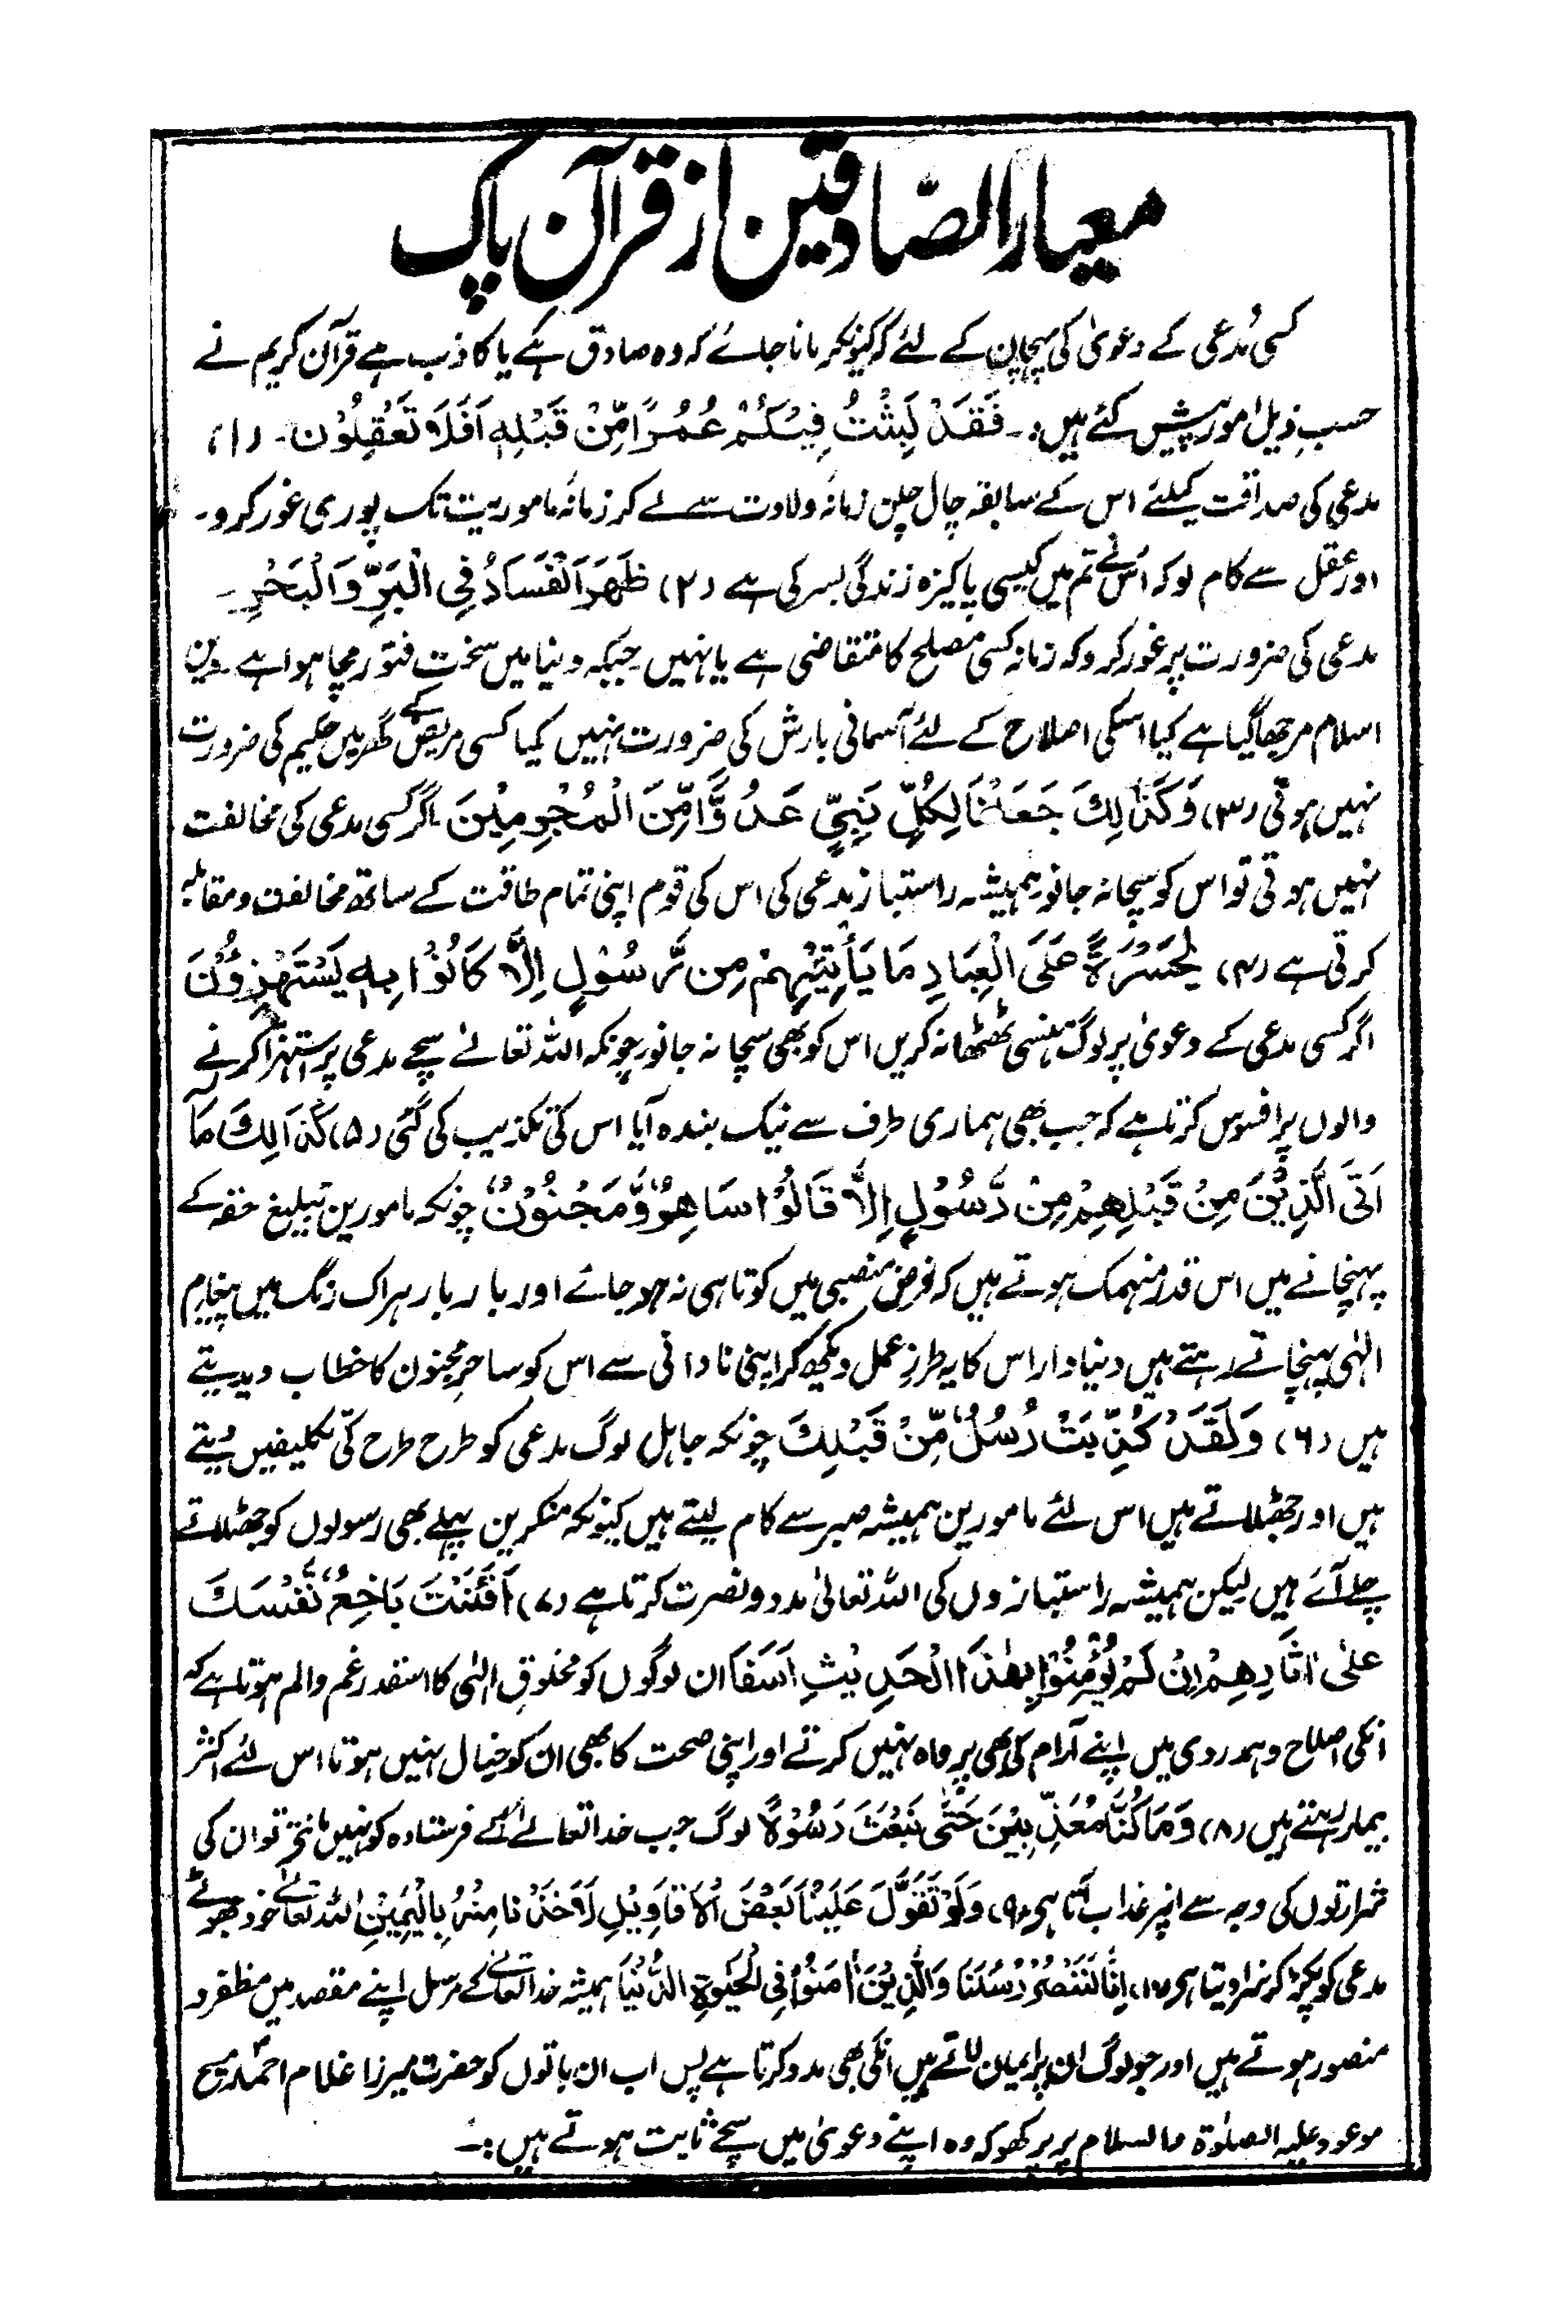 معیار الصّادقین از قرآن پاک
کسی مُدعی کے دعویٰ کی پہچان کے لئے کہ کیونکر مانا جائے کہ وہ صادق ہے یا کاذب ہے قرآن کریم نے
حسبِ ذیل امور پیش کئے ہیں:۔ فَقَدْ لَبِثْتُ فِیْکُمْ عُمُرًا مِّنْ قَبْلِهٖ اَفَلَا تَعْقِلُوْن۔ (۱)
مدعی کی صداقت کیلئے اس کے سابقہ چال چلن زمانہ ولادت سے لے کر زمانہ ماموریت تک پوری غور کرو۔
اور عقل سے کام لو کہ اس نے تم میں کیسی پاکیزہ زندگی بسر کی ہے (۲) ظَهَرَ الْفَسَادُ فِی الْبَرِّ وَالْبَحْرِ۔
مدعی کی ضرورت پر غور کرو کہ زمانہ کسی مصلح کا متقاضی ہے یا نہیں جبکہ دنیا میں سخت فتور مچا ہوا ہے۔ دین
اسلام مرجھا گیا ہے کیا اسکی اصلاح کے لئے آسمانی بارش کی ضرورت نہیں کیا کسی مریض کے گھر میں حکیم کی ضرورت
نہیں ہوتی (۳) وَکَذٰلِكَ جَعَلْنَا لِکُلِّ نَبِیٍّ عَدُوًّا مِّنَ الْمُجْرِمِیْنَ۔ اگر کسی مدعی کی مخالفت
نہیں ہوتی تو اس کو سچا نہ جانو ہمیشہ راستباز مدعی کی اس کی قوم اپنی تمام طاقت کے ساتھ مخالفت و مقابلہ
کرتی ہے (۴) یٰحَسْرَةً عَلَی الْعِبَادِ مَا یَأْتِیْهِمْ مِن رَّسُوْلٍ اِلَّا کَانُوْا بِهٖ یَسْتَهْزِؤُنَ
اگر کسی مدعی کے دعویٰ پر لوگ ہنسی ٹھٹھا نہ کریں اس کو بھی سچا نہ جانو چونکہ اللہ تعالےٰ سچے مدعی پر استہزا کرنے
والوں پر افسوس کرتا ہے کہ جب بھی ہماری طرف سے نیک بندہ آیا اس کی تکذیب کی گئی (۵) کَذَالِكَ مَآ
اَتَی الَّذِیْنَ مِنْ قَبْلِهِمْ مِنْ رَّسُوْلٍ اِلَّا قَالُوْا سَاحِرٌ وَّمَجْنُوْنٌ چونکہ مامورین تبلیغ حقہ کے
پہنچانے میں اس قدر منہمک ہوتے ہیں کہ فرض منصبی میں کوتاہی نہ ہو جائے اور بار بار ہر اک رنگ میں پیغام
الہٰی پہنچاتے رہتے ہیں دنیا دار اس کا یہ طرز عمل دیکھ کر اپنی نادانی سے اس کو ساحر مجنون کا خطاب دیدیتے
ہیں (۶) وَلَقَدْ کُذِّبَتْ رُسُلٌ مِّنْ قَبْلِكَ چونکہ جاہل لوگ مدعی کو طرح طرح کی تکلیفیں دیتے
ہیں اور جھٹلاتے ہیں اس لئے مامورین ہمیشہ صبر سے کام لیتے ہیں کیونکہ منکرین پہلے بھی رسولوں کو جھٹلاتے
چلے آئے ہیں لیکن ہمیشہ راستبازوں کی اللہ تعالیٰ مدد و نصرت کرتا ہے (۷) اَفَأَنْتَ بَاخِعٌ نَّفْسَكَ
عَلٰی اٰثَارِهِمْ اِنْ لَمْ یُؤْمِنُوْا بِهٰذَا الْحَدِیْثِ اَسَفَا ان لوگوں کو مخلوق الہٰی کا اسقدر غم و الم ہوتا ہے کہ
انکی اصلاح و ہمدردی میں اپنے آرام کی بھی پرواہ نہیں کرتے اور اپنی صحت کا بھی ان کو خیال نہیں ہوتا اس لئے اکثر
بیمار رہتے ہیں (۸) وَمَا کُنَّا مُعَذِّبِیْنَ حَتّٰی نَبْعَثَ رَسُوْلًا لوگ جب خدا تعالےٰ کے فرستادہ کو نہیں مانتے تو ان کی
شرارتوں کی وجہ سے انپر عذاب آتا ہے (۹) وَلَوْ تَقَوَّلَ عَلَیْنَا بَعْضَ الْاَقَاوِیْلِ لَاَخَذْنَا مِنْهُ بِالْیَمِیْنِ اللہ تعالےٰ خود جھوٹے
مدعی کو پکڑ کر سزا دیتا ہے (۱۰) اِنَّا لَنَنْصُرُ رُسُلَنَا وَالَّذِیْنَ اٰمَنُوْا فِی الْحَیٰوةِ الدُّنْیَا ہمیشہ خدا تعالےٰ کے مرسل اپنے مقصد میں مظفر و
منصور ہوتے ہیں اور جو لوگ ان پر ایمان لاتے ہیں انکی بھی مدد کرتا ہے پس اب ان باتوں کو حضرت میرزا غلام احمد مسیح
موعود علیہ الصلوٰة والسلام پر پرکھو کہ وہ اپنے دعویٰ میں سچے ثابت ہوتے ہیں:۔